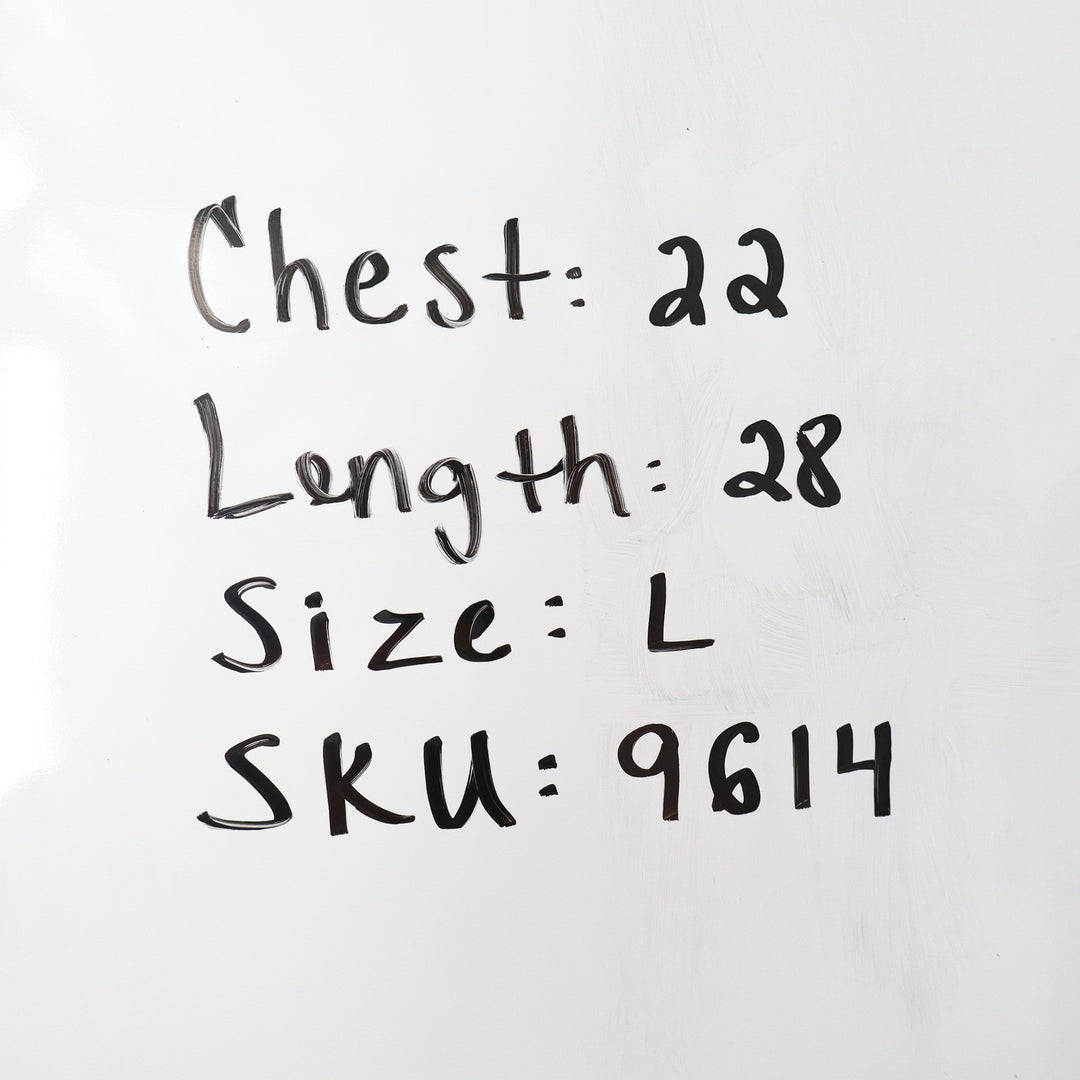 Chest: 22
Length: 28
Size: L
SKU: 9614